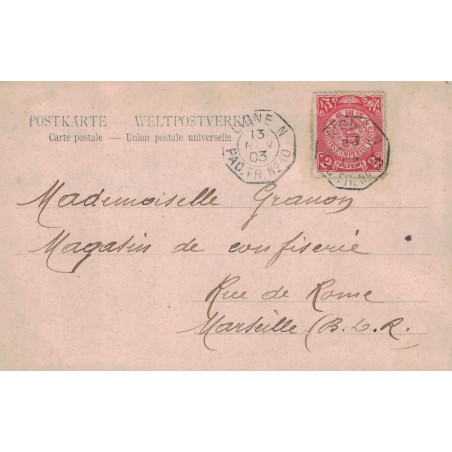 POSTKARTE — WELTPOSTVEREIN
Carte postale — Union postale universelle
LIGNE N
13
NOV
03
PAQ. FR. Nº 10
Mademoiselle Granon
Magasin de confiserie
Rue de Rome
Marseille (B. d. R.